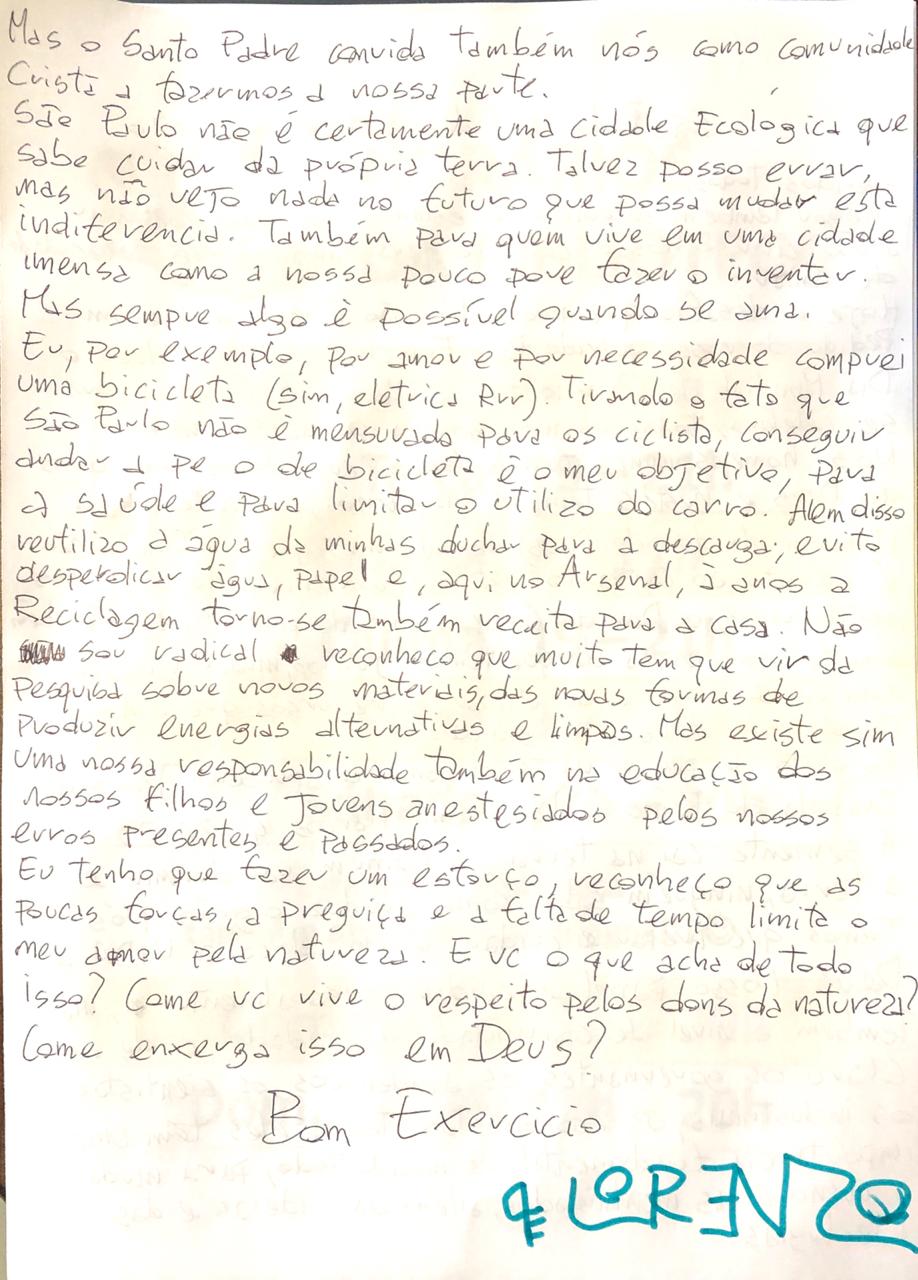 Mas o Santo Padre convida também nós como comunidade
Cristã a fazermos a nossa parte.
São Paulo não é certamente uma cidade Ecológica que
sabe cuidar da própria terra. Talvez posso errar,
mas não vejo nada no futuro que possa mudar esta
indiferencia. Também para quem vive em uma cidade
imensa como a nossa pouco pove fazer o inventar.
Mas sempre algo è possível quando se ama.
Eu, por exemplo, por amor e por necessidade comprei
uma bicicleta (sim, eletrica Rrr). Tirando o fato que
São Paulo não è mensurada para os ciclista, conseguir
andar a pe o de bicicleta é o meu objetivo, para
a saúde e para limitar o utilizo do carro. Alem disso
reutilizo a água da minhas duchar para a descarga, evito
desperdicar água, papel e, aqui no Arsenal, à anos a
Reciclagem torno-se também receita para a casa. Não
sou radical reconheco que muito tem que vir da
pesquisa sobre novos materiais, das novas formas de
produzir energias alternativas e limpas. Mas existe sim
uma nossa responsabilidade também na educação dos
nossos filhos e jovens anestesiados pelos nossos
erros presentes e passados.
Eu tenho que fazer um esforço, reconheço que as
poucas forças, a preguiça e a falta de tempo limita o
meu amor pela natureza. E vc o que acha de todo
isso? Come vc vive o respeito pelos dons da natureza?
Come enxerga isso em Deus?
Bom Exercicio
LORENZO